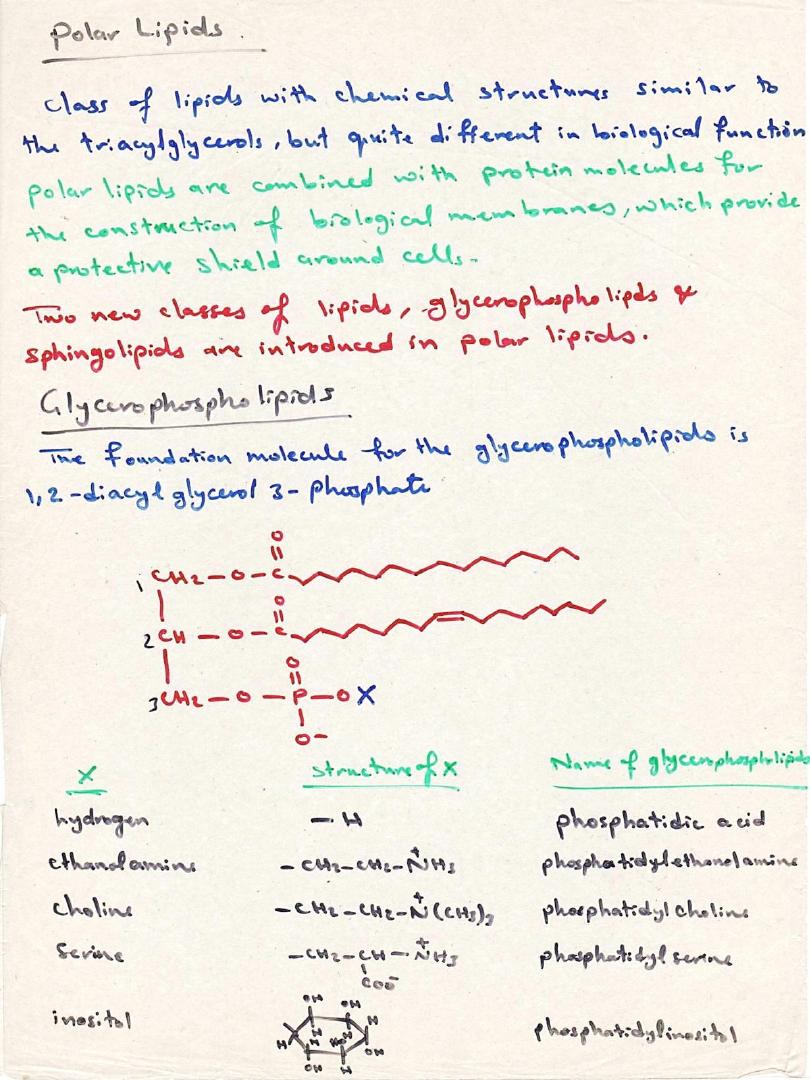 Polar Lipids.
Class of lipids with chemical structures similar to
the triacylglycerols, but quite different in biological function
polar lipids are combined with protein molecules for
the construction of biological membranes, which provide
a protective shield around cells.
Two new classes of lipids, glycerophospholipds &
sphingolipids are introduced in polar lipids.
Glycerophospholipids
The foundation molecule for the glycerophospholipids is
1,2-diacyl glycerol 3-phosphate
O
1 CH2-O-C
O
2 CH-O-C
O
3 CH2-O-P-O X
O-
X structure of X Name of glycerophospholipids
hydrogen -H phosphatidic acid
ethanolamine -CH2-CH2-N+H3 phosphatidylethanolamine
choline -CH2-CH2-N+(CH3)3 phosphatidyl choline
Serine -CH2-CH-N+H3 phosphatidyl serine
COO-
OH OH
inositol H H H HO H phosphatidylinositol
OH H OH